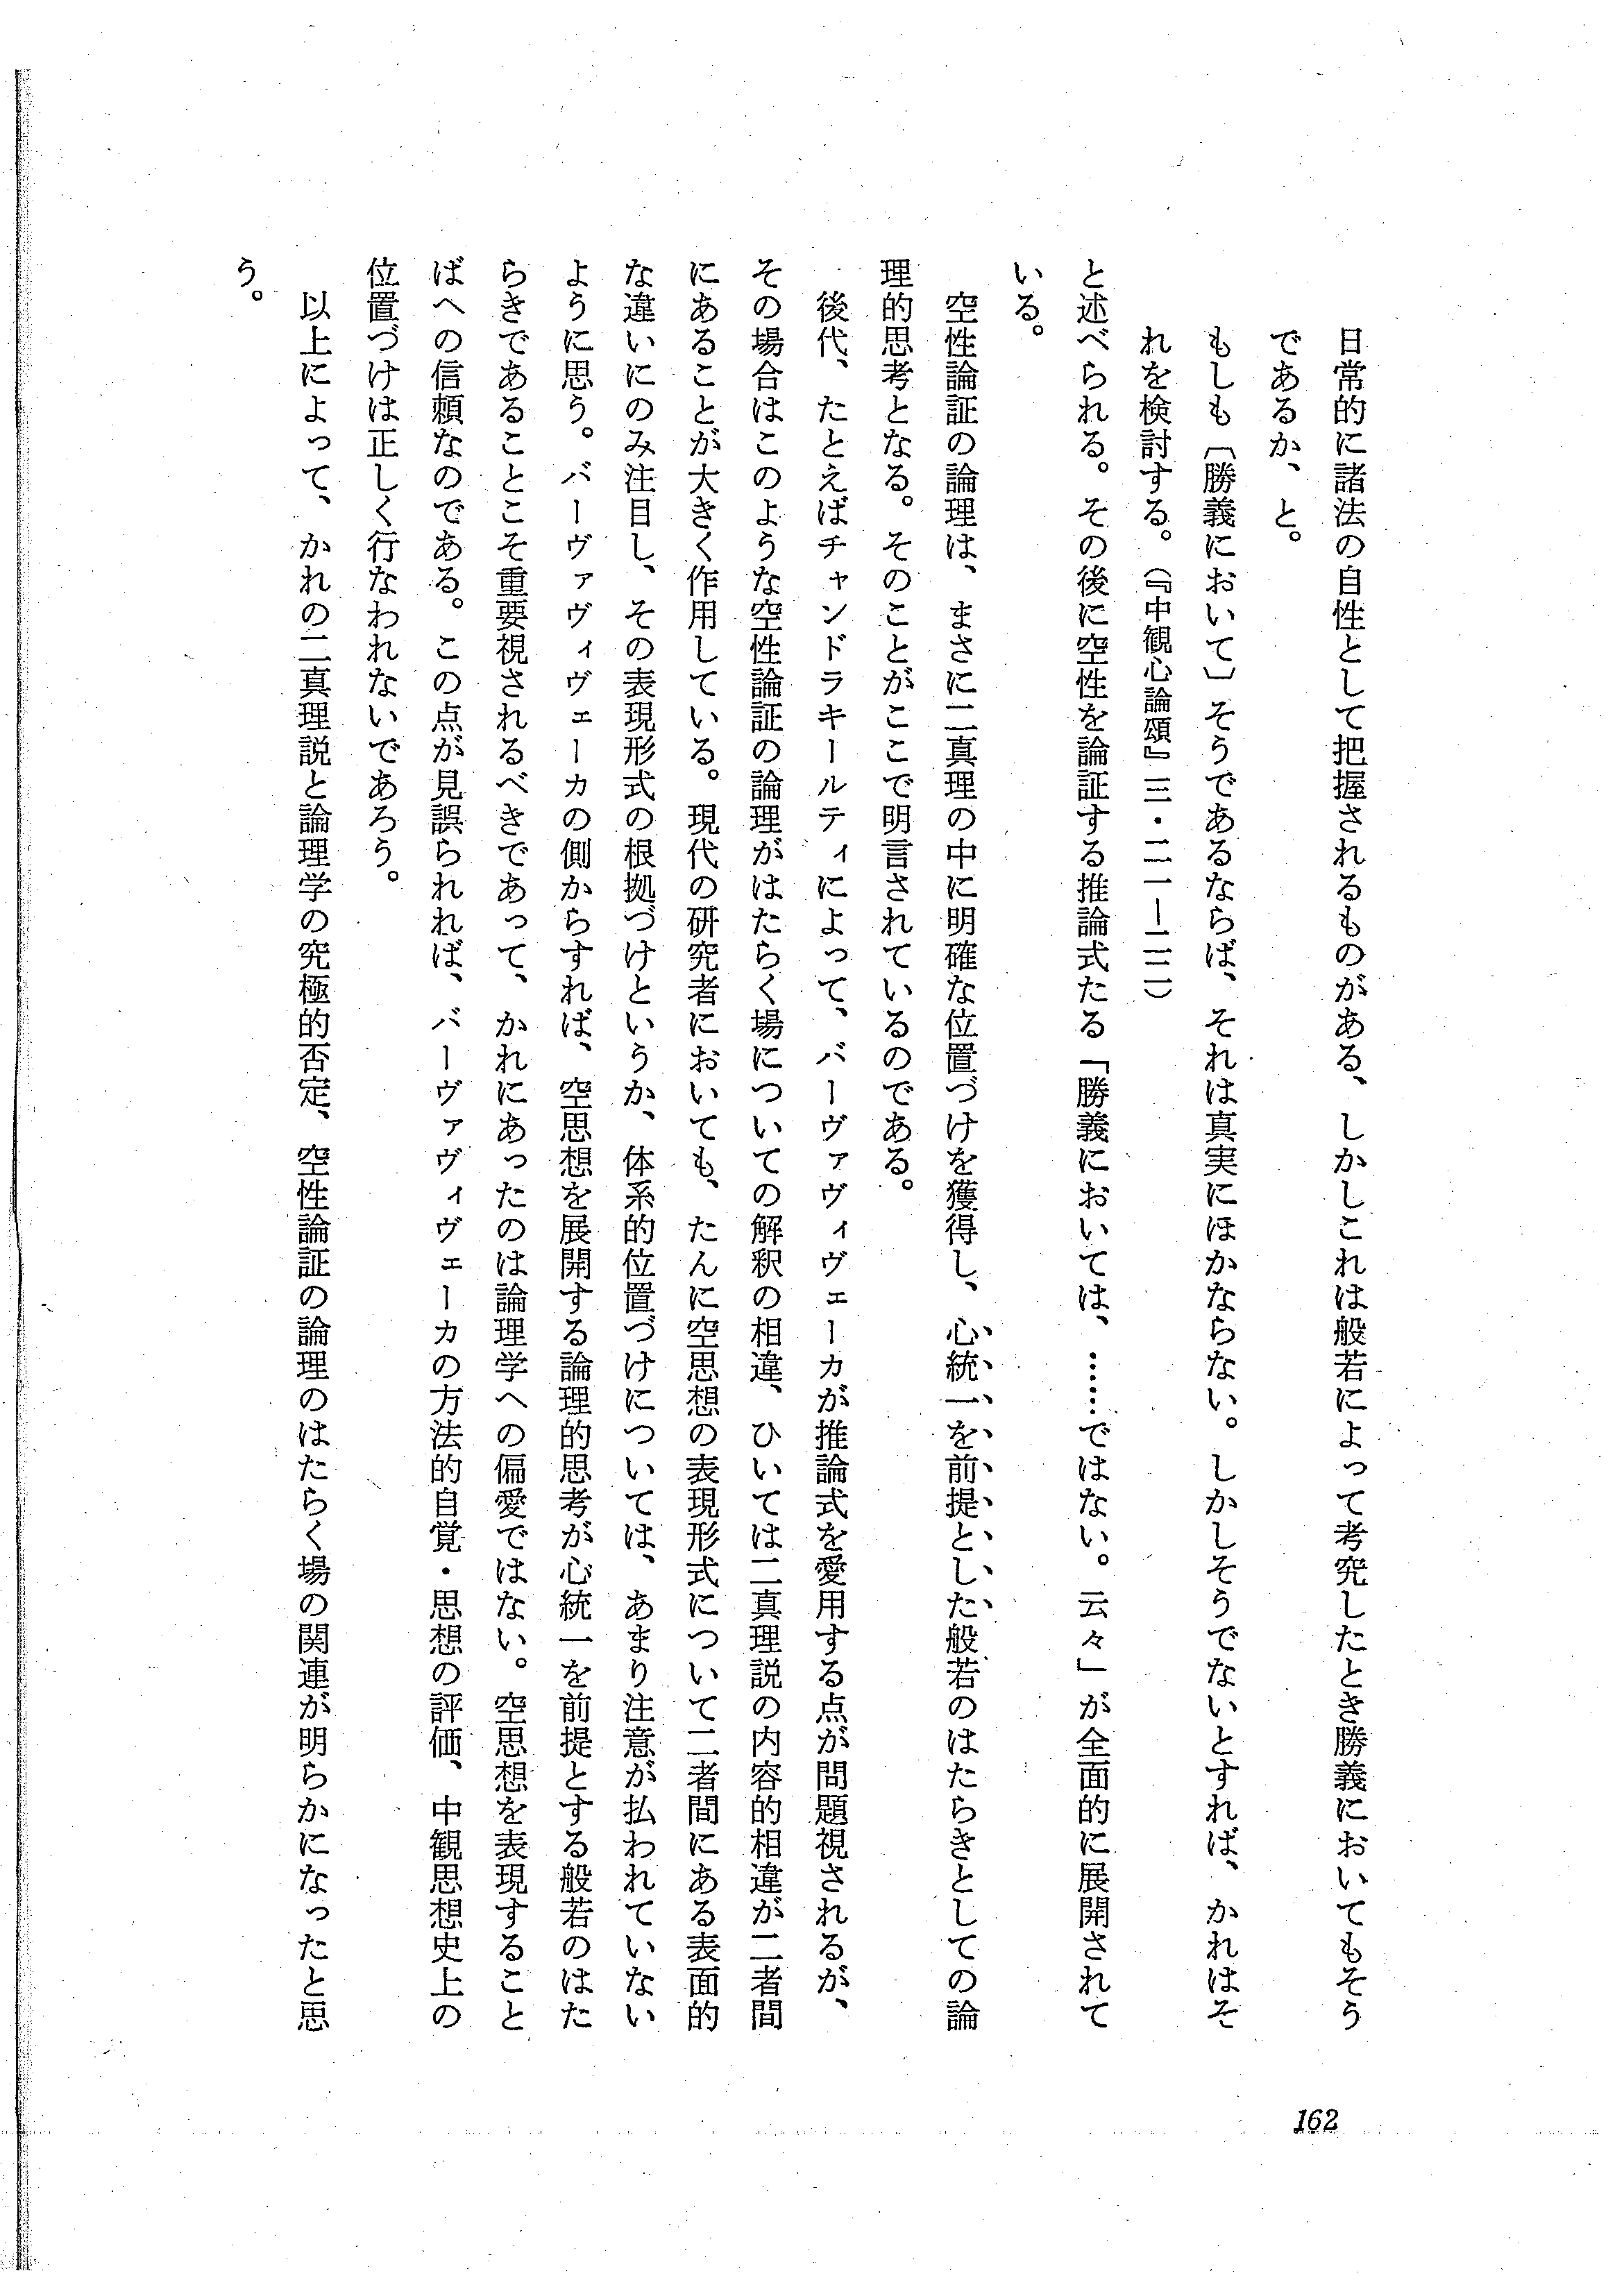 日常的に諸法の自性として把握されるものがある、しかしこれは般若によって考究したとき勝義においてもそう
であるか、と。
もしも〔勝義において〕そうであるならば、それは真実にほかならない。しかしそうでないとすれば、かれはそ
れを検討する。（『中観心論頌』三・二一―二二）
と述べられる。その後に空性を論証する推論式たる「勝義においては、……ではない。云々」が全面的に展開されて
いる。
空性論証の論理は、まさに二真理の中に明確な位置づけを獲得し、心統一を前提とした般若のはたらきとしての論
理的思考となる。そのことがここで明言されているのである。
後代、たとえばチャンドラキールティによって、バーヴァヴィヴェーカが推論式を愛用する点が問題視されるが、
その場合はこのような空性論証の論理がはたらく場についての解釈の相違、ひいては二真理説の内容的相違が二者間
にあることが大きく作用している。現代の研究者においても、たんに空思想の表現形式について二者間にある表面的
な違いにのみ注目し、その表現形式の根拠づけというか、体系的位置づけについては、あまり注意が払われていない
ように思う。バーヴァヴィヴェーカの側からすれば、空思想を展開する論理的思考が心統一を前提とする般若のはた
らきであることこそ重要視されるべきであって、かれにあったのは論理学への偏愛ではない。空思想を表現すること
ばへの信頼なのである。この点が見誤られれば、バーヴァヴィヴェーカの方法的自覚・思想の評価、中観思想史上の
位置づけは正しく行なわれないであろう。
以上によって、かれの二真理説と論理学の究極的否定、空性論証の論理のはたらく場の関連が明らかになったと思
う。
162